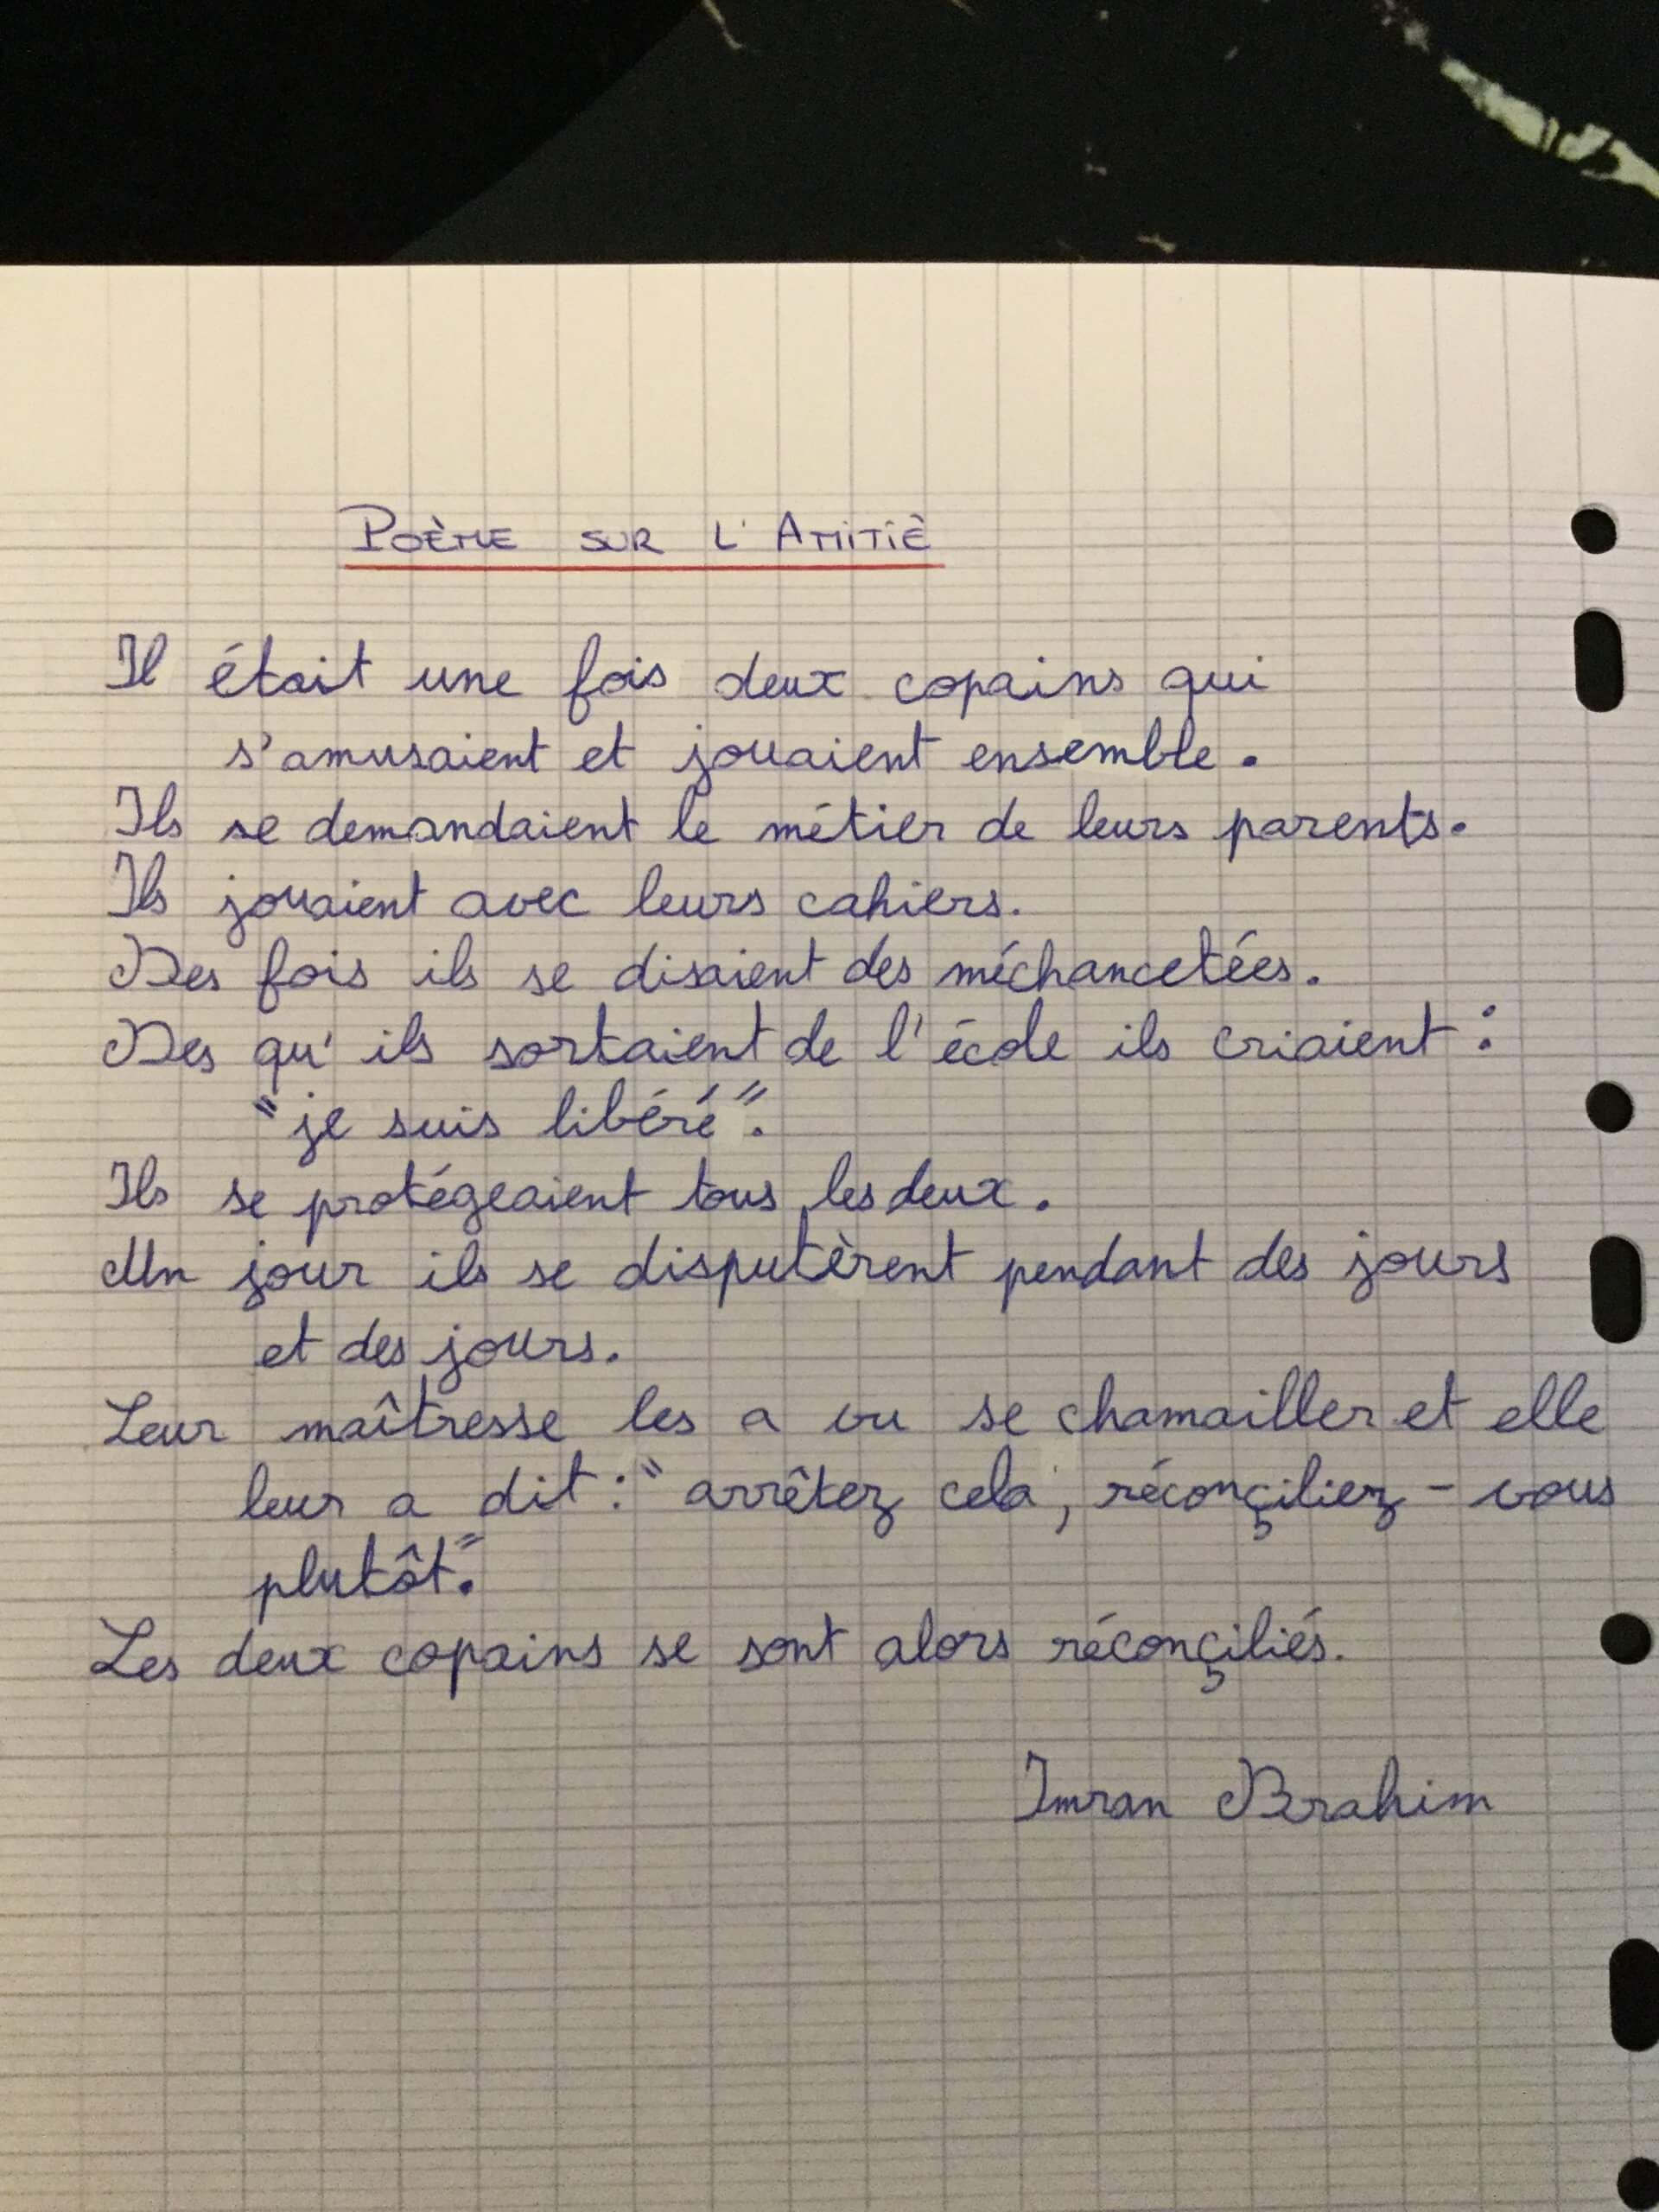 POÈME SUR L'AMITIÈ
Il était une fois deux copains qui
s'amusaient et jouaient ensemble.
Ils se demandaient le métier de leurs parents.
Ils jouaient avec leurs cahiers.
Des fois ils se disaient des méchancetées.
Des qu'ils sortaient de l'école ils criaient :
"je suis libéré".
Ils se protégeaient tous les deux.
Un jour ils se disputèrent pendant des jours
et des jours.
Leur maîtresse les a vu se chamailler et elle
leur a dit : "arrêtez cela, réconçiliez-vous
plutôt".
Les deux copains se sont alors réconçiliés.
Imran Brahim